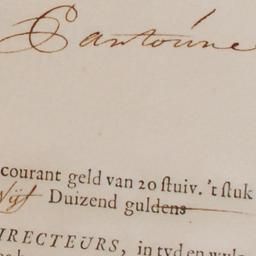 Cantoúne
courant geld van 20 stuiv. 't stuk
Vijf Duizend guldens
IRECTEURS, in tyd en wyle